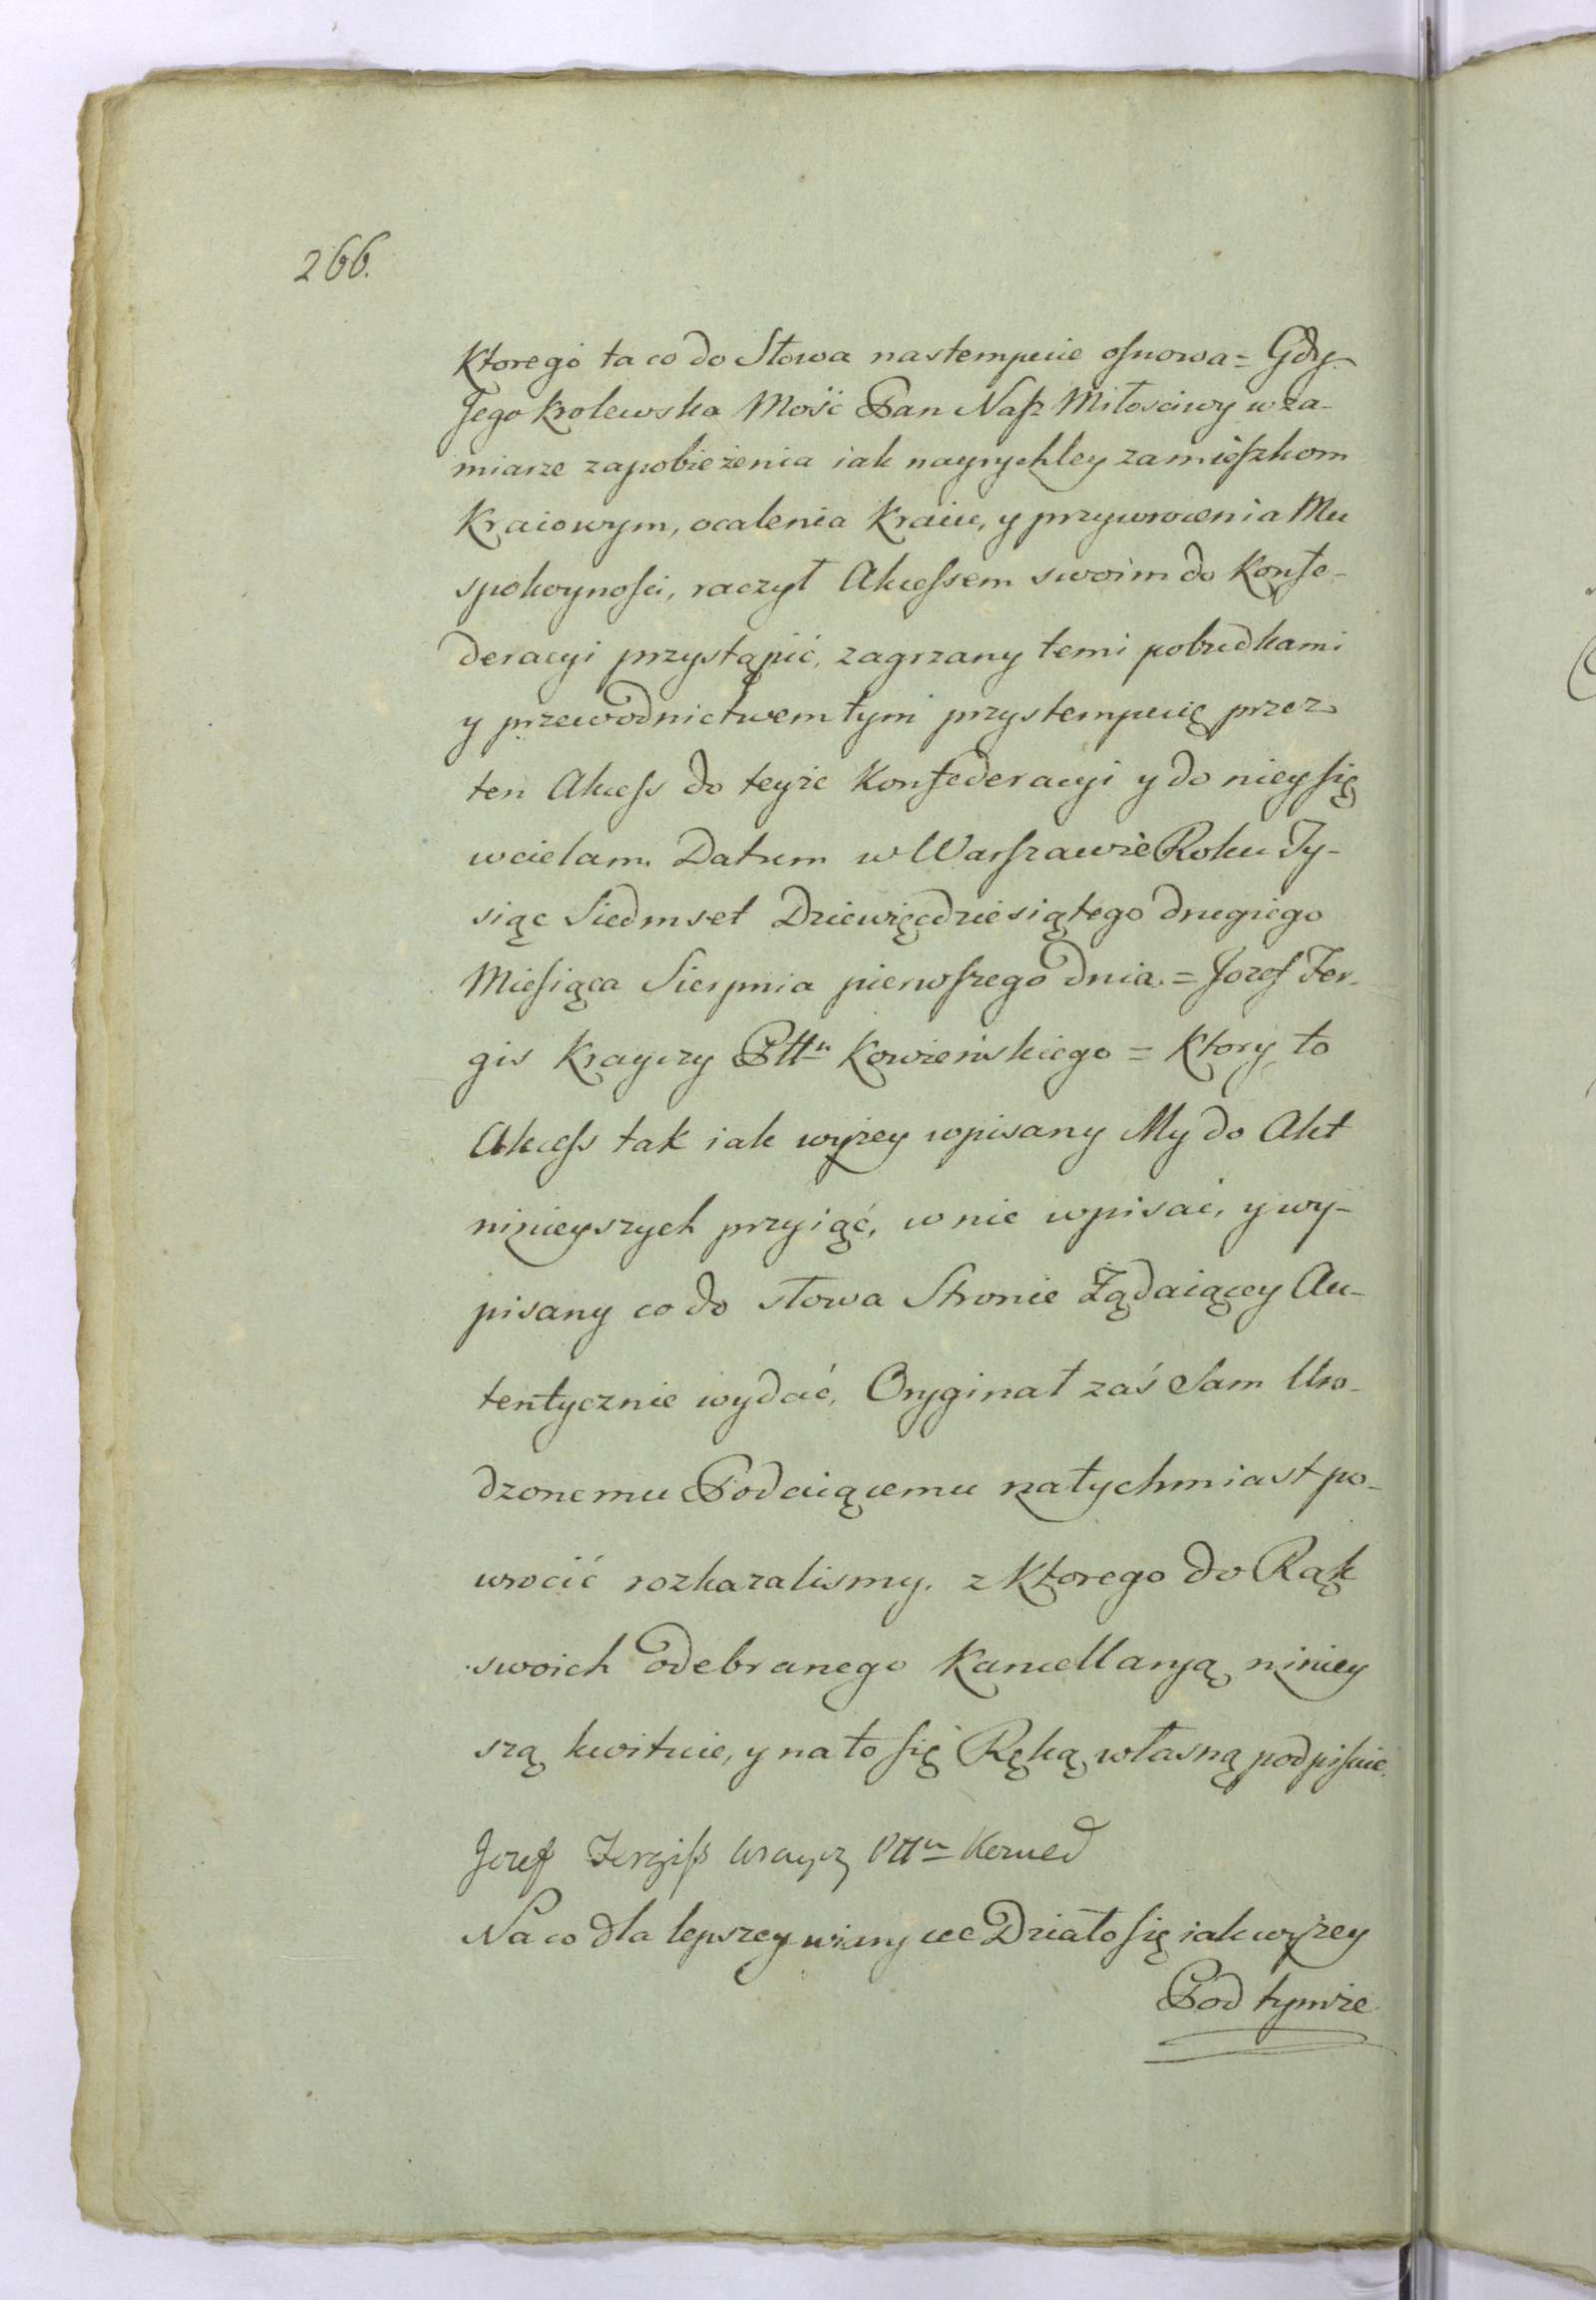 266.
Ktorego ta co do Słowa nastempuie osnowa = Gdy
Jego Krolewska Mość Pan Nasz Miłosciwy w za-
miarze zapobieżenia iak nayrychley zamieszkom
Kraiowym, ocalenia Kraiu, y przywrocenia Mu
spokoynosci, raczył Akcessem swoim do Konfe-
deracyi przystąpić, zagrzany temi pobudkami
y przewodnictwem tym przystempuię przez
ten Akcess do teyże Konfederacyi y do niey się
wcielam. Datum w Warszawie Roku Ty-
siąc Siedmset Dziewięćdziesiątego drugiego
Miesiąca Sierpnia pierwszego dnia. = Jozef Jer-
gis Krayczy Pttu Kowieńskiego = Ktory to
Akcess tak iak wyżey wpisany My do Akt
ninieyszych przyiąć, w nie wpisać, y wy-
pisany co do słowa Stronie Żądaiącey Au-
tentycznie wydać, Oryginał zaś Sam Uro-
dzonemu Podaiącemu natychmiast po-
wrocić rozkazalismy. z Ktorego do Rąk
swoich odebranego Kancellaryą niniey
szą kwituie, y na to się Ręką własną podpisuie.
Jozef Jergiss Krayczy Pttu
Na co dla lepszey wiary etc Działo się iak wyżey
Pod tymże